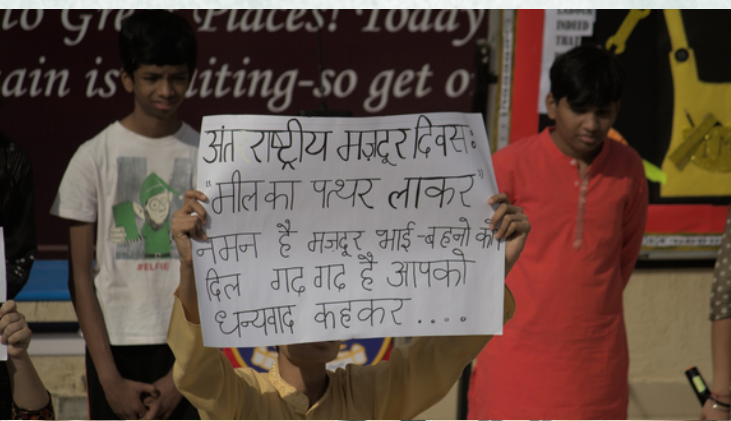 to Great Places! Today
ain is iting-so get o
INDEED
THAT
#ELFIE
अंत राष्ट्रीय मज़दूर दिवस:
"मील का पत्थर लाकर"
नमन है मज़दूर भाई-बहनो को
दिल गद गद है आपको
धन्यवाद कहकर ....